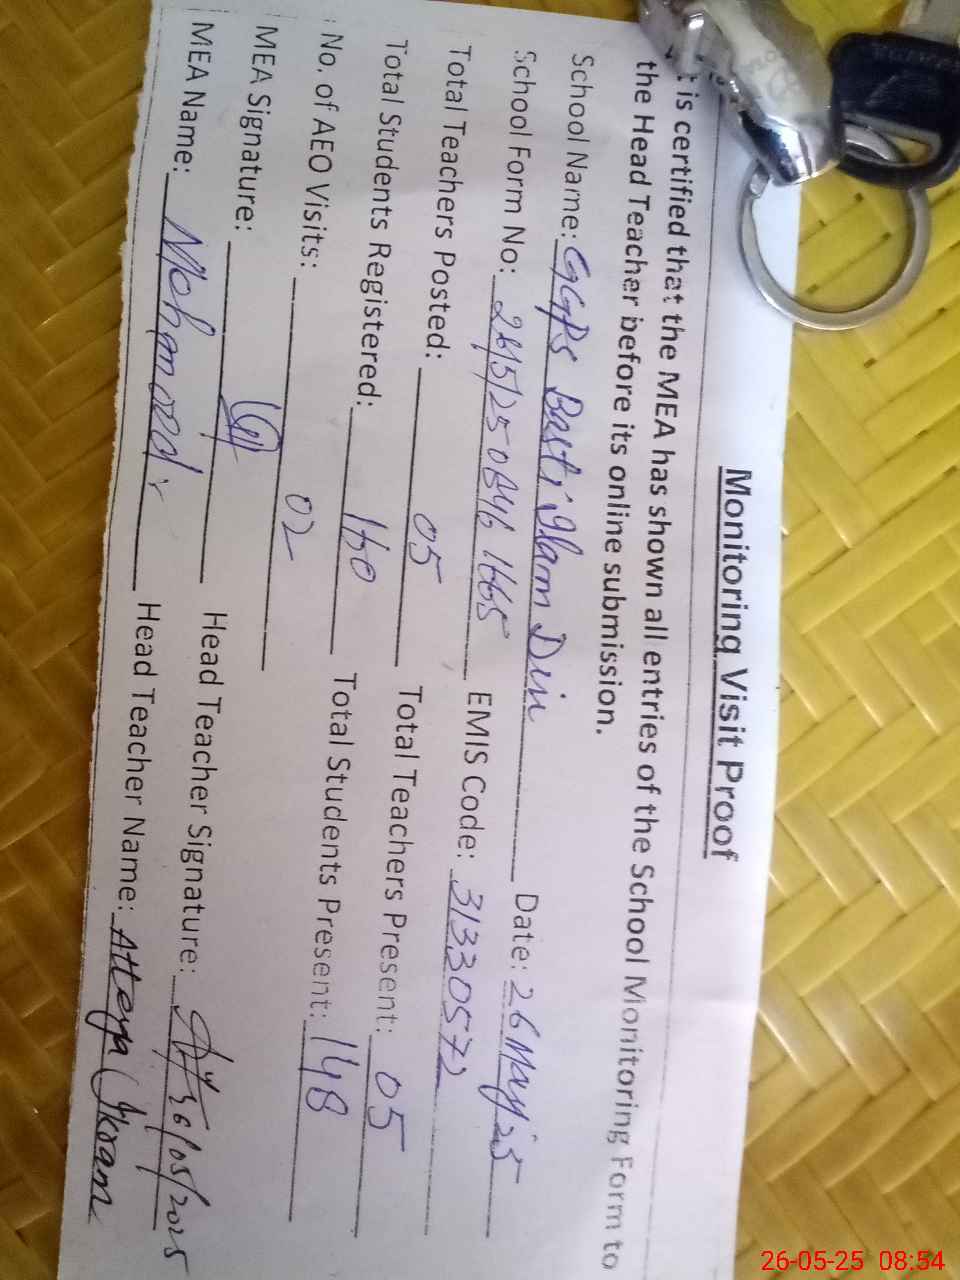 Monitoring Visit Proof
It is certified that the MEA has shown all entries of the School Monitoring Form to
the Head Teacher before its online submission.
School Name: GGPS Basti Ilam Din Date: 26 May 25
School Form No: EMIS Code: 31330572
Total Teachers Posted: 05 Total Teachers Present: 05
Total Students Registered: 160 Total Students Present: 148
No. of AEO Visits: 02
MEA Signature: Head Teacher Signature: 26/05/2025
MEA Name: Mehmood Head Teacher Name: Atteya Ikram
26-05-25 08:54